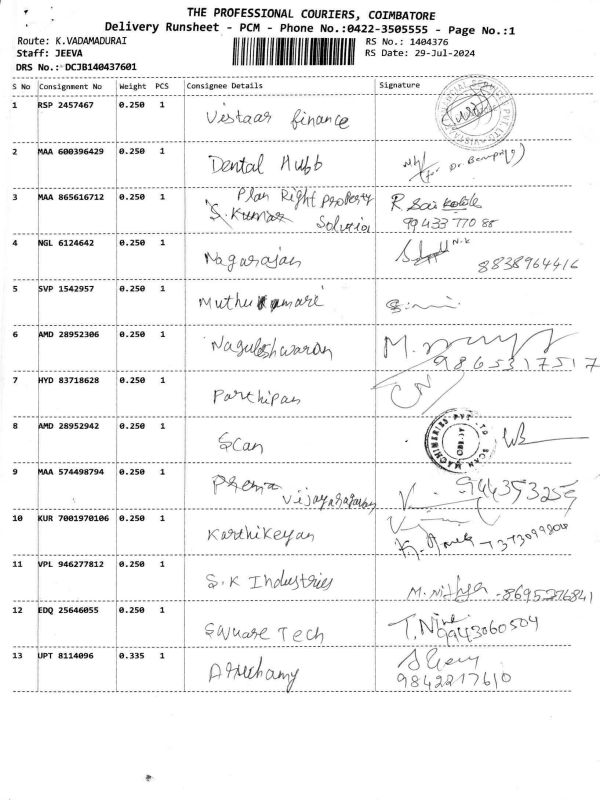 THE PROFESSIONAL COURIERS, COIMBATORE
Delivery Runsheet - PCM - Phone No.:0422-3505555 - Page No.:1
Route: K.VADAMADURAI RS No.: 1404376
Staff: JEEVA RS Date: 29-Jul-2024
DRS No.: DCJB140437601
S No Consignment No Weight PCS Consignee Details Signature
1 RSP 2457467 0.250 1 Vistaar finance
2 MAA 600396429 0.250 1 Dental Hubb
3 MAA 865616712 0.250 1 Plan Right Property
S. Kumar Solutio R Sai
99433 770 88
4 NGL 6124642 0.250 1 Nagarajan N.K
8838964416
5 SVP 1542957 0.250 1 Muthukumare
6 AMD 28952306 0.250 1 Naguleshwaran M.
9865317517
7 HYD 83718628 0.250 1 Parthipan CN
8 AMD 28952942 0.250 1 Scan
SCAN MACHINERIES PVT LTD
9 MAA 574498794 0.250 1 Prema
Vijayaragavan 944353259
10 KUR 7001970106 0.250 1 Karthikeyan
11 VPL 946277812 0.250 1 S.K Industries
M. Nithya - 8695276841
12 EDQ 25646055 0.250 1 Square Tech T.
9943060504
13 UPT 8114096 0.335 1 Aruchamy
9842217610